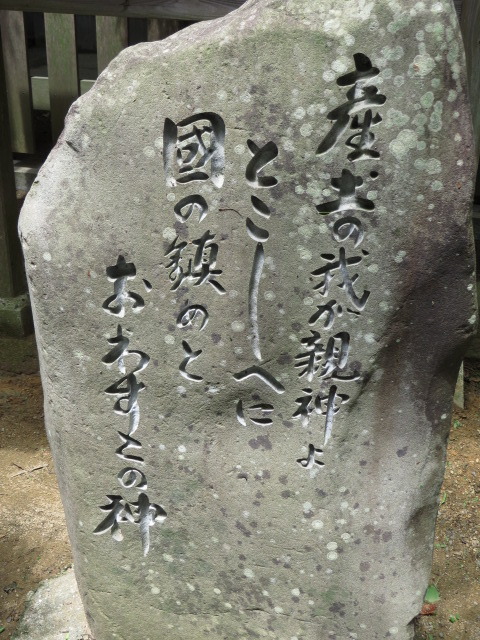 産土の我が親神よ
とこしへに
國の鎮めと
おわすとの神